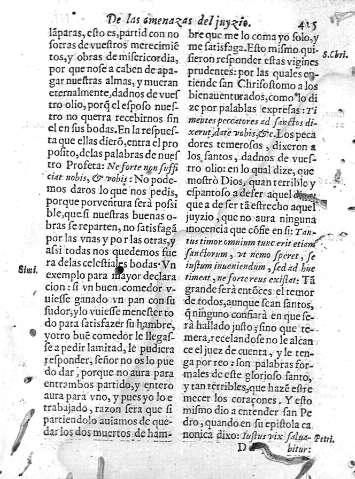 De las amenazas del juyzio. 425
láparas, esto es, partid con no
sotras de vuestros merecimié
tos, y obras de misericordia,
por que no se a caben de apa-
gar nuestras almas, y mueran
eternalmente, dadnos de vues
tro olio, porq̃ el esposo nues-
tro no querra recebirnos sin
el en sus bodas. En la respues-
ta que ellas dierõ, entra el pro
posito, de las palabras de nues
tro Profeta: Ne forte non suffi
ciat nobis, & vobis: No pode-
mos daros lo que nos pedis,
porque por ventura será possi
ble, que si nuestras buenas o-
bras se reparten, no satisfagã
por las vnas y por las otras, y
assi todas nos quedemos fue
ra de las celestiales bodas. Vn
Simi. exemplo para mayor declara
cion: si vn buen comedor vu
iesse ganado vn pan con su
sudor, y lo vuiesse menester to
do para satisfazer su hambre,
y otro bué comedor le llegas-
se a pedir la mitad, le pudiera
responder, señor no os lo pue
do dar, porque no aura para
entrambos partido, y entero
aura para vno, y pues yo lo e
trabajado, razon sera que si
partiendolo auiamos de que-
dar los dos muertos de ham-
bre que me lo coma yo solo, y
me satisfaga. Esto mismo qui-
S. Chri. sieron responder estas virgines
prudentes: por las quales en
tiende san Chrisostomo a los
bienauenturados, como lo di
ze por palablas expresas: Ti
mentes peccatores ad sanctos di-
xerut, date vobis, &c. Los peca
dores temerosos, dixeron a
los santos, dadnos de vues-
tro olio: en lo qual dize, que
mostrò Dios, quan terrible y
espantoso a de ser aquel
que a de ser tã estrecho aquel
juyzio, que no aura ninguna
inocencia que cõfie en si: Tan-
tus timor omnium tunc erit etiam
sanctorum, vt nemo speret, se
iustum inueniendum, sed ad huc
timeant, ne forte reus existat: Tã
grande será entõces el temor
de todos, aunque sean santos,
q̃ ninguno confiará en que se-
rà hallado justo; sino que te-
mera, recelandose no le alcan
ce el juez de cuenta, y le ten-
ga por reo: son palabras for-
males de este glorioso santo,
y tan terribles, que hazẽ estre
mecer los coraçones. Y esto
mismo dio a entender san Pe
dro, quando en su epistola ca
Petri. nonica dixo: Iustus vix salua-
D bitur: